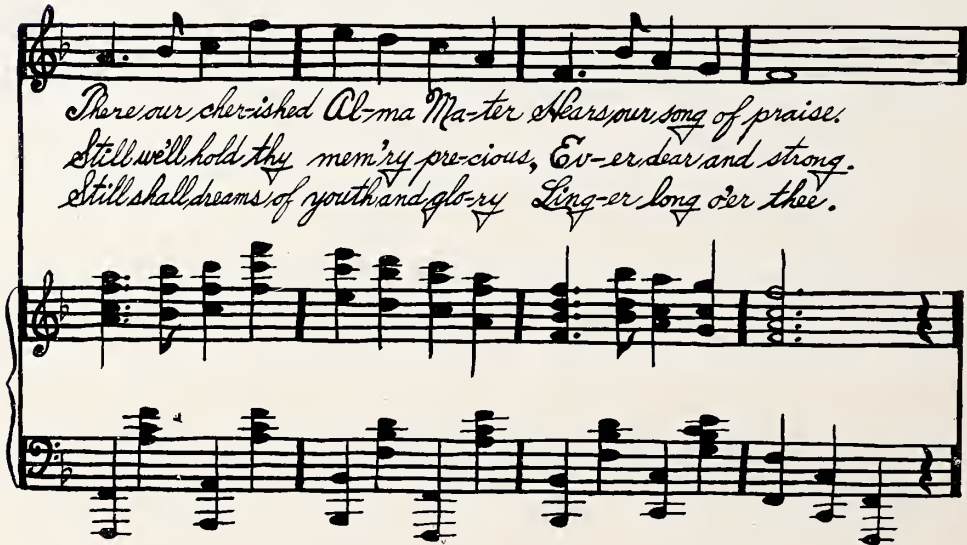 There our cher-ished Al-ma Ma-ter Hears our song of praise.
Still we'll hold thy mem'ry pre-cious, Ev-er dear and strong.
Still shall dreams of youth and glo-ry Ling-er long o'er thee.